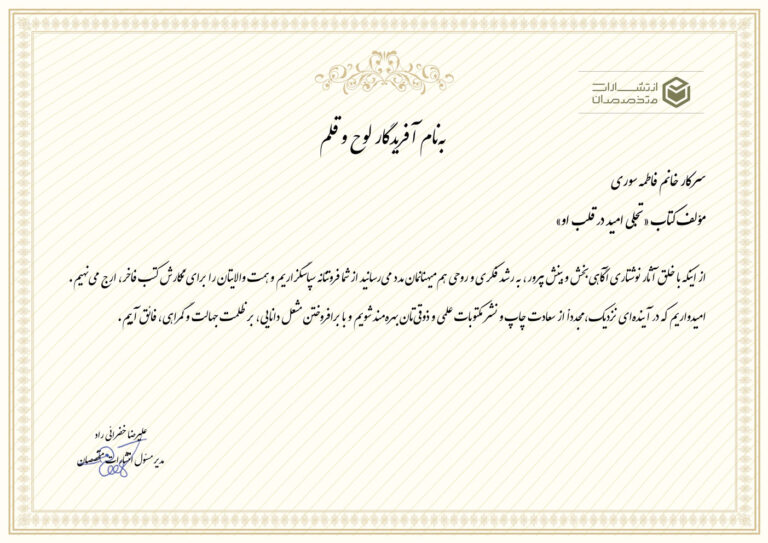 انتشارات
متخصصان
به‌نام آفریدگار لوح و قلم
سرکار خانم فاطمه سوری
مؤلف کتاب «تجلی امید در قلب او»
از اینکه با خلق آثار نوشتاری آگاهی بخش و بینش پرور، به رشد فکری و روحی هم میهنانمان مدد می‌رسانید از شما فروتنانه سپاسگزاریم و همت والایتان را برای نگارش کتب فاخر، ارج می‌نهیم.
امیدواریم که در آینده‌ای نزدیک، مجدداً از سعادت چاپ و نشر مکتوبات علمی و ذوقی‌تان بهره‌مند شویم و با برافروختن مشعل دانایی، بر ظلمت جهالت و گمراهی، فائق آییم.
علیرضا خضرائی راد
مدیر مسئول انتشارات متخصصان